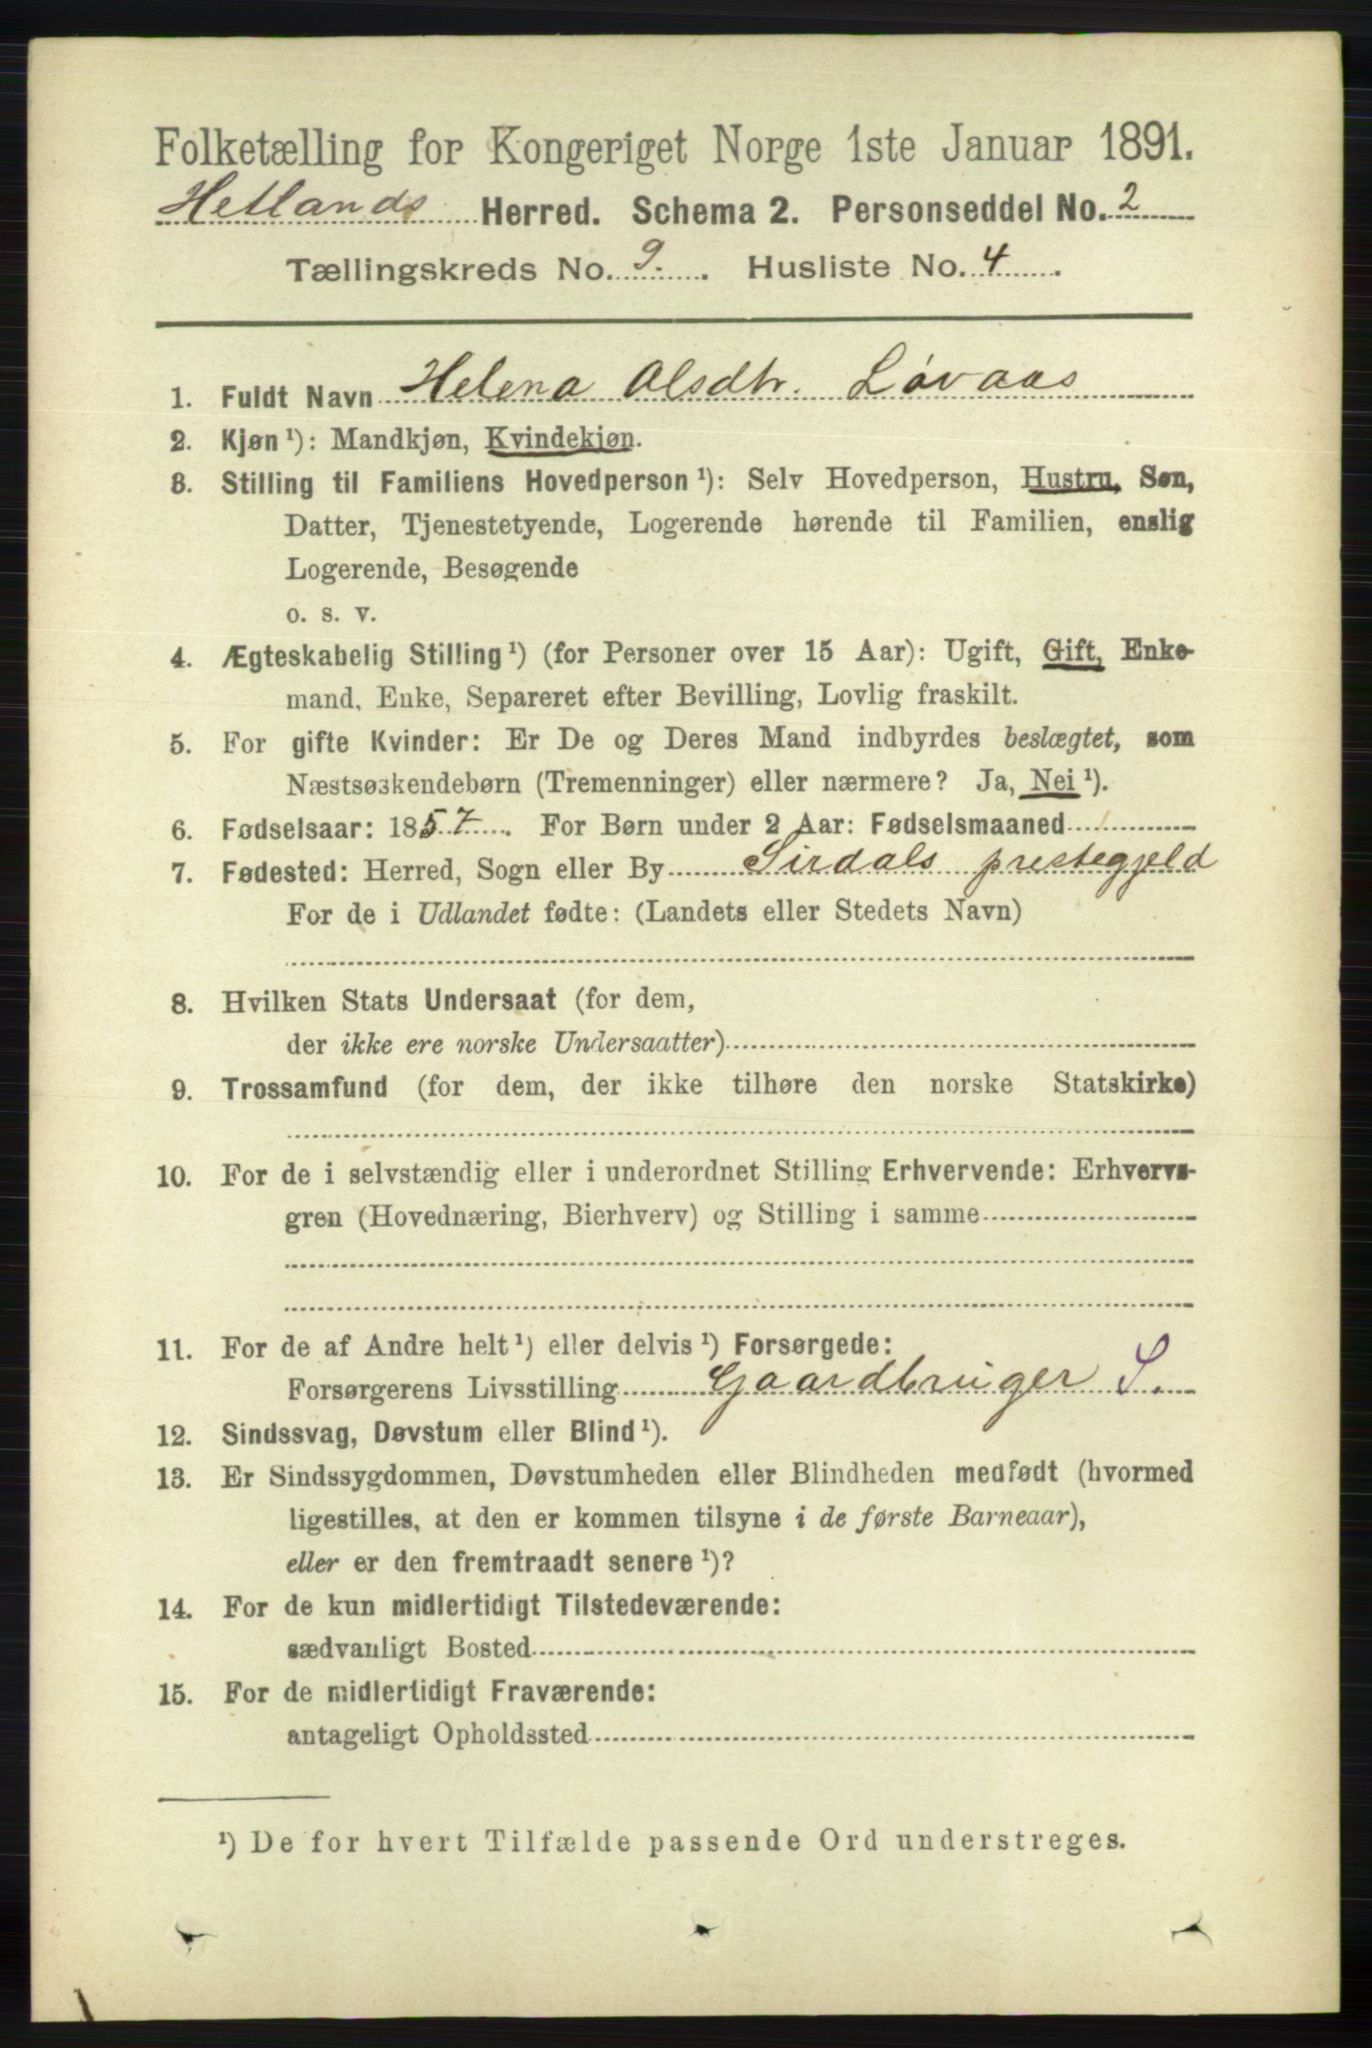 Folketælling for Kongeriget Norge 1ste Januar 1891.
Hetlands Herred. Schema 2. Personseddel No. 2
Tællingskreds No. 9. Husliste No. 4
1. Fuldt Navn Helena Olsdtr. Lövaas
2. Kjøn ¹): Mandkjøn, Kvindekjøn.
3. Stilling til Familiens Hovedperson ¹): Selv Hovedperson, Hustru, Søn,
Datter, Tjenestetyende, Logerende hørende til Familien, enslig
Logerende, Besøgende
o. s. v.
4. Ægteskabelig Stilling ¹) (for Personer over 15 Aar): Ugift, Gift, Enke-
mand, Enke, Separeret efter Bevilling, Lovlig fraskilt.
5. For gifte Kvinder: Er De og Deres Mand indbyrdes beslægtet, som
Næstsøskendebørn (Tremenninger) eller nærmere? Ja, Nei ¹).
6. Fødselsaar: 1857. For Børn under 2 Aar: Fødselsmaaned
7. Fødested: Herred, Sogn eller By Sirdals prestegjeld
For de i Udlandet fødte: (Landets eller Stedets Navn)
8. Hvilken Stats Undersaat (for dem,
der ikke ere norske Undersaatter)
9. Trossamfund (for dem, der ikke tilhøre den norske Statskirke)
10. For de i selvstændig eller i underordnet Stilling Erhvervende: Erhvervs-
gren (Hovednæring, Bierhverv) og Stilling i samme
11. For de af Andre helt ¹) eller delvis ¹) Forsørgede:
Forsørgerens Livsstilling Gaardbruger S.
12. Sindssvag, Døvstum eller Blind ¹).
13. Er Sindssygdommen, Døvstumheden eller Blindheden medfødt (hvormed
ligestilles, at den er kommen tilsyne i de første Barneaar),
eller er den fremtraadt senere ¹)?
14. For de kun midlertidigt Tilstedeværende:
sædvanligt Bosted
15. For de midlertidigt Fraværende:
antageligt Opholdssted
¹) De for hvert Tilfælde passende Ord understreges.